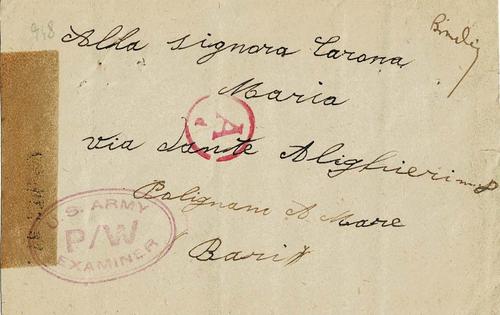 948
Alla signora Carona
Maria
A
d
via Dante Alighieri n 8
Polignano A Mare
Bari
U.S. ARMY
P/W
EXAMINER